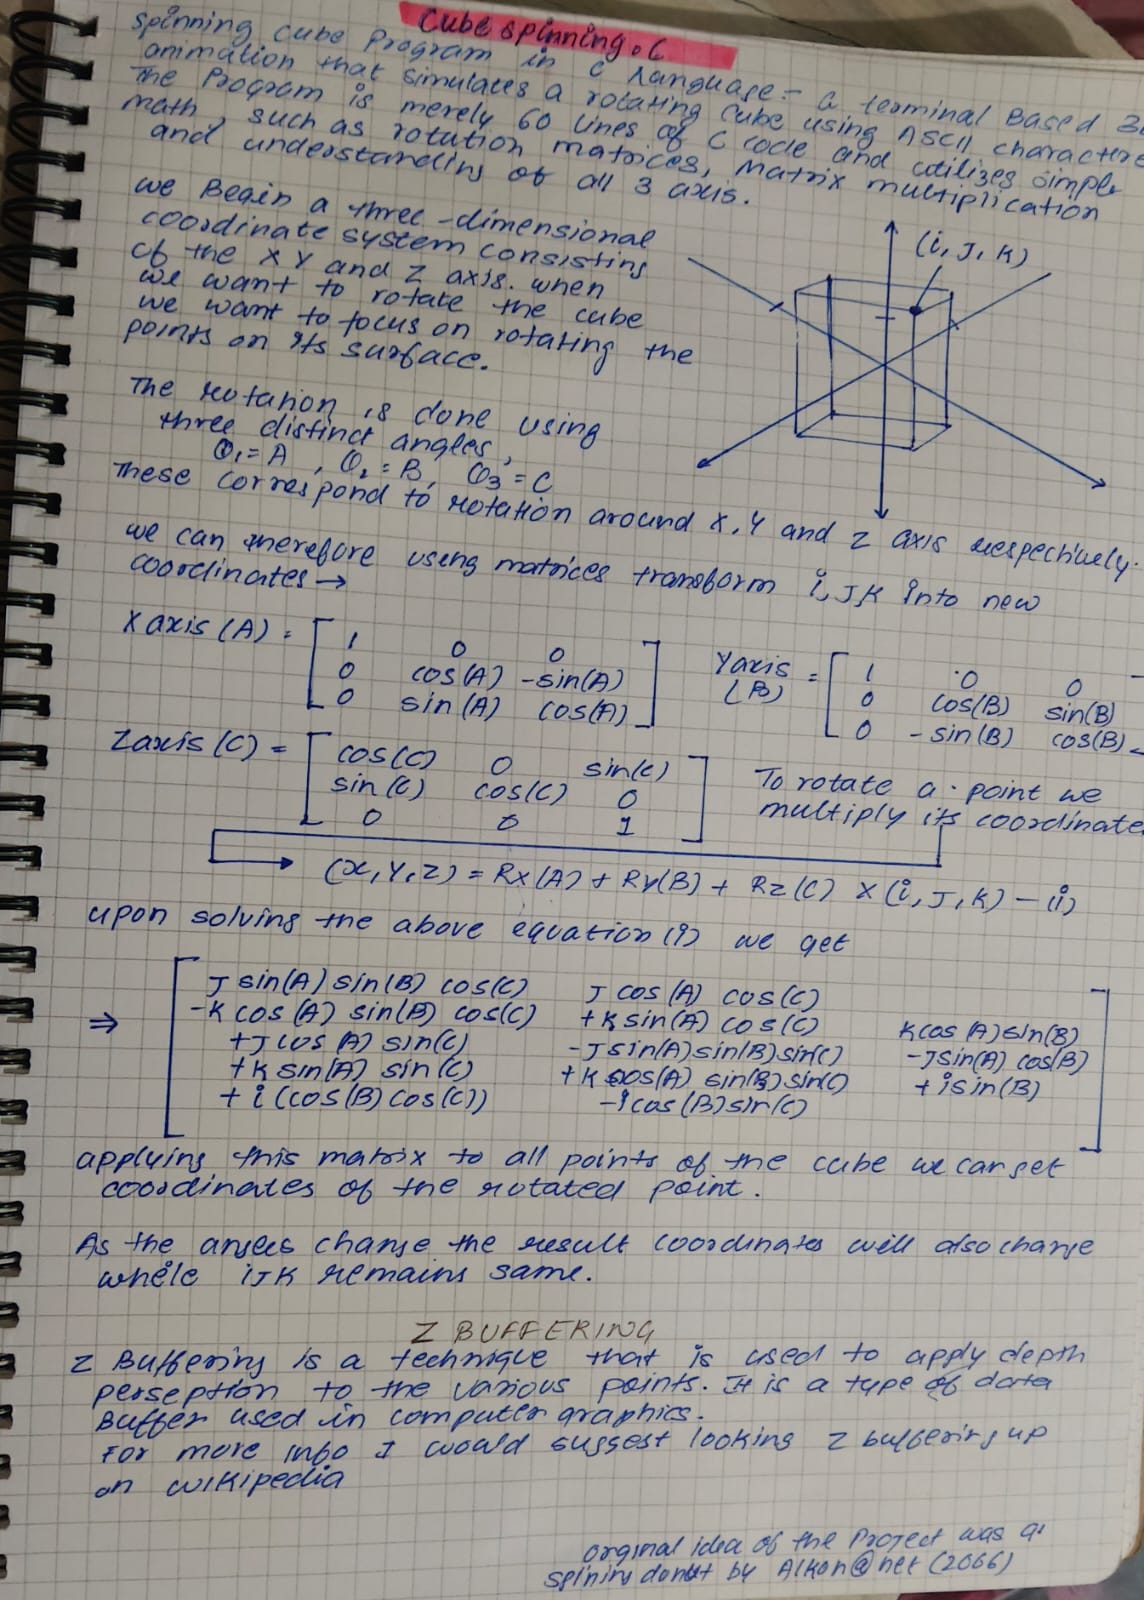 Cube spinning.C
spinning cube program in C language:- a terminal Based 3D
animation that simulates a rotating cube using ASCII characters
The Program is merely 60 lines of C code and utilizes simple
math, such as rotation matrices, Matrix multiplication
and understanding of all 3 axis.
we Begin a three-dimensional
coordinate system consisting
of the X Y and Z axis. when
we want to rotate the cube
we want to focus on rotating the
points on its surface.
(i, J, K)
The rotation is done using
three distinct angles,
θ₁=A , θ₂=B, θ₃=C
These correspond to rotation around X, Y and Z axis respectively.
we can therefore using matrices transform i, J K into new
coordinates →
X axis (A) = [ 1 0 0
0 cos(A) -sin(A)
0 sin(A) cos(A) ]
Y axis (B) = [ 1 0 0
0 cos(B) sin(B)
0 -sin(B) cos(B)
Z axis (C) = [ cos(C) 0 sin(C)
sin(C) cos(C) 0
0 0 1 ]
To rotate a point we
multiply its coordinate
(x, Y, Z) = Rx(A) + Ry(B) + Rz(C) x (i, J, K) - (i)
upon solving the above equation (i) we get
⇒ [ J sin(A) sin(B) cos(C) J cos(A) cos(C)
-K cos(A) sin(B) cos(C) +K sin(A) cos(C) K cos(A) sin(B)
+J cos(A) sin(C) -J sin(A) sin(B) sin(C) -J sin(A) cos(B)
+K sin(A) sin(C) +K cos(A) sin(B) sin(C) +i sin(B)
+i (cos(B) cos(C)) -i cos(B) sin(C) ]
applying this matrix to all points of the cube we can get
coordinates of the rotated point.
As the angles change the result coordinates will also change
while iJK remains same.
Z BUFFERING
Z Buffering is a technique that is used to apply depth
perseption to the various points. It is a type of data
Buffer used in computer graphics.
For more info I would suggest looking Z buffering up
on wikipedia
orginal idea of the Project was a
spining donut by Alkon@net (2006)